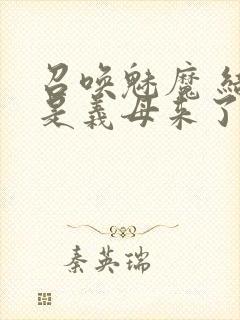 召唤魅魔 结
是义母来了
秦英瑞